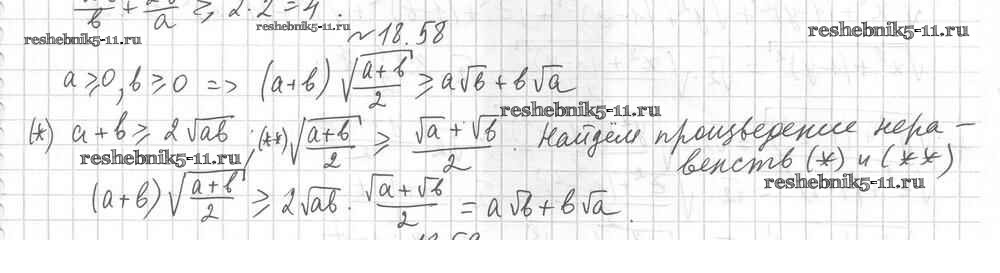 b + a ≥ 2·2=4.
reshebnik5-11.ru
reshebnik5-11.ru
reshebnik5-11.ru
№18.58
a≥0, b≥0 => (a+b)√((a+b)/2) ≥ a√b + b√a
reshebnik5-11.ru
(*) a+b ≥ 2√ab ; (**) √((a+b)/2) ≥ (√a+√b)/2 . Найдём произведение нера-
венств (*) и (**)
reshebnik5-11.ru
reshebnik5-11.ru
(a+b)√((a+b)/2) ≥ 2√ab · (√a+√b)/2 = a√b + b√a.